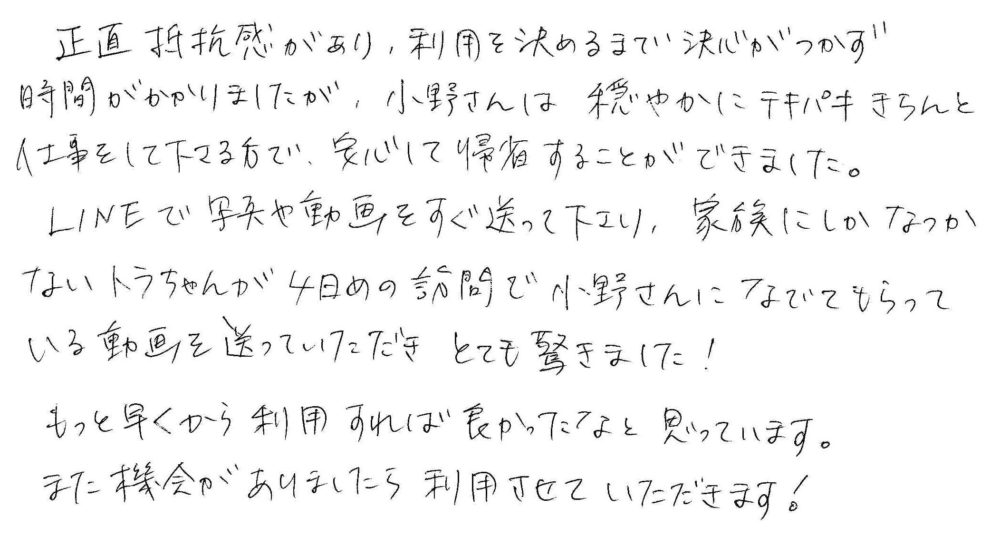 正直 抵抗感があり、利用を決めるまで 決心がつかず
時間がかかりましたが、小野さんは 穏やかに テキパキ きちんと
仕事をして下さる方で、安心して帰省することができました。
LINEで 写真や動画をすぐ送って下さり、家族にしかなつか
ないトラちゃんが 4日めの訪問で小野さんになでてもらって
いる動画を送っていただき とても驚きました!
もっと早くから利用すれば良かったなと思っています。
また機会がありましたら利用させていただきます!